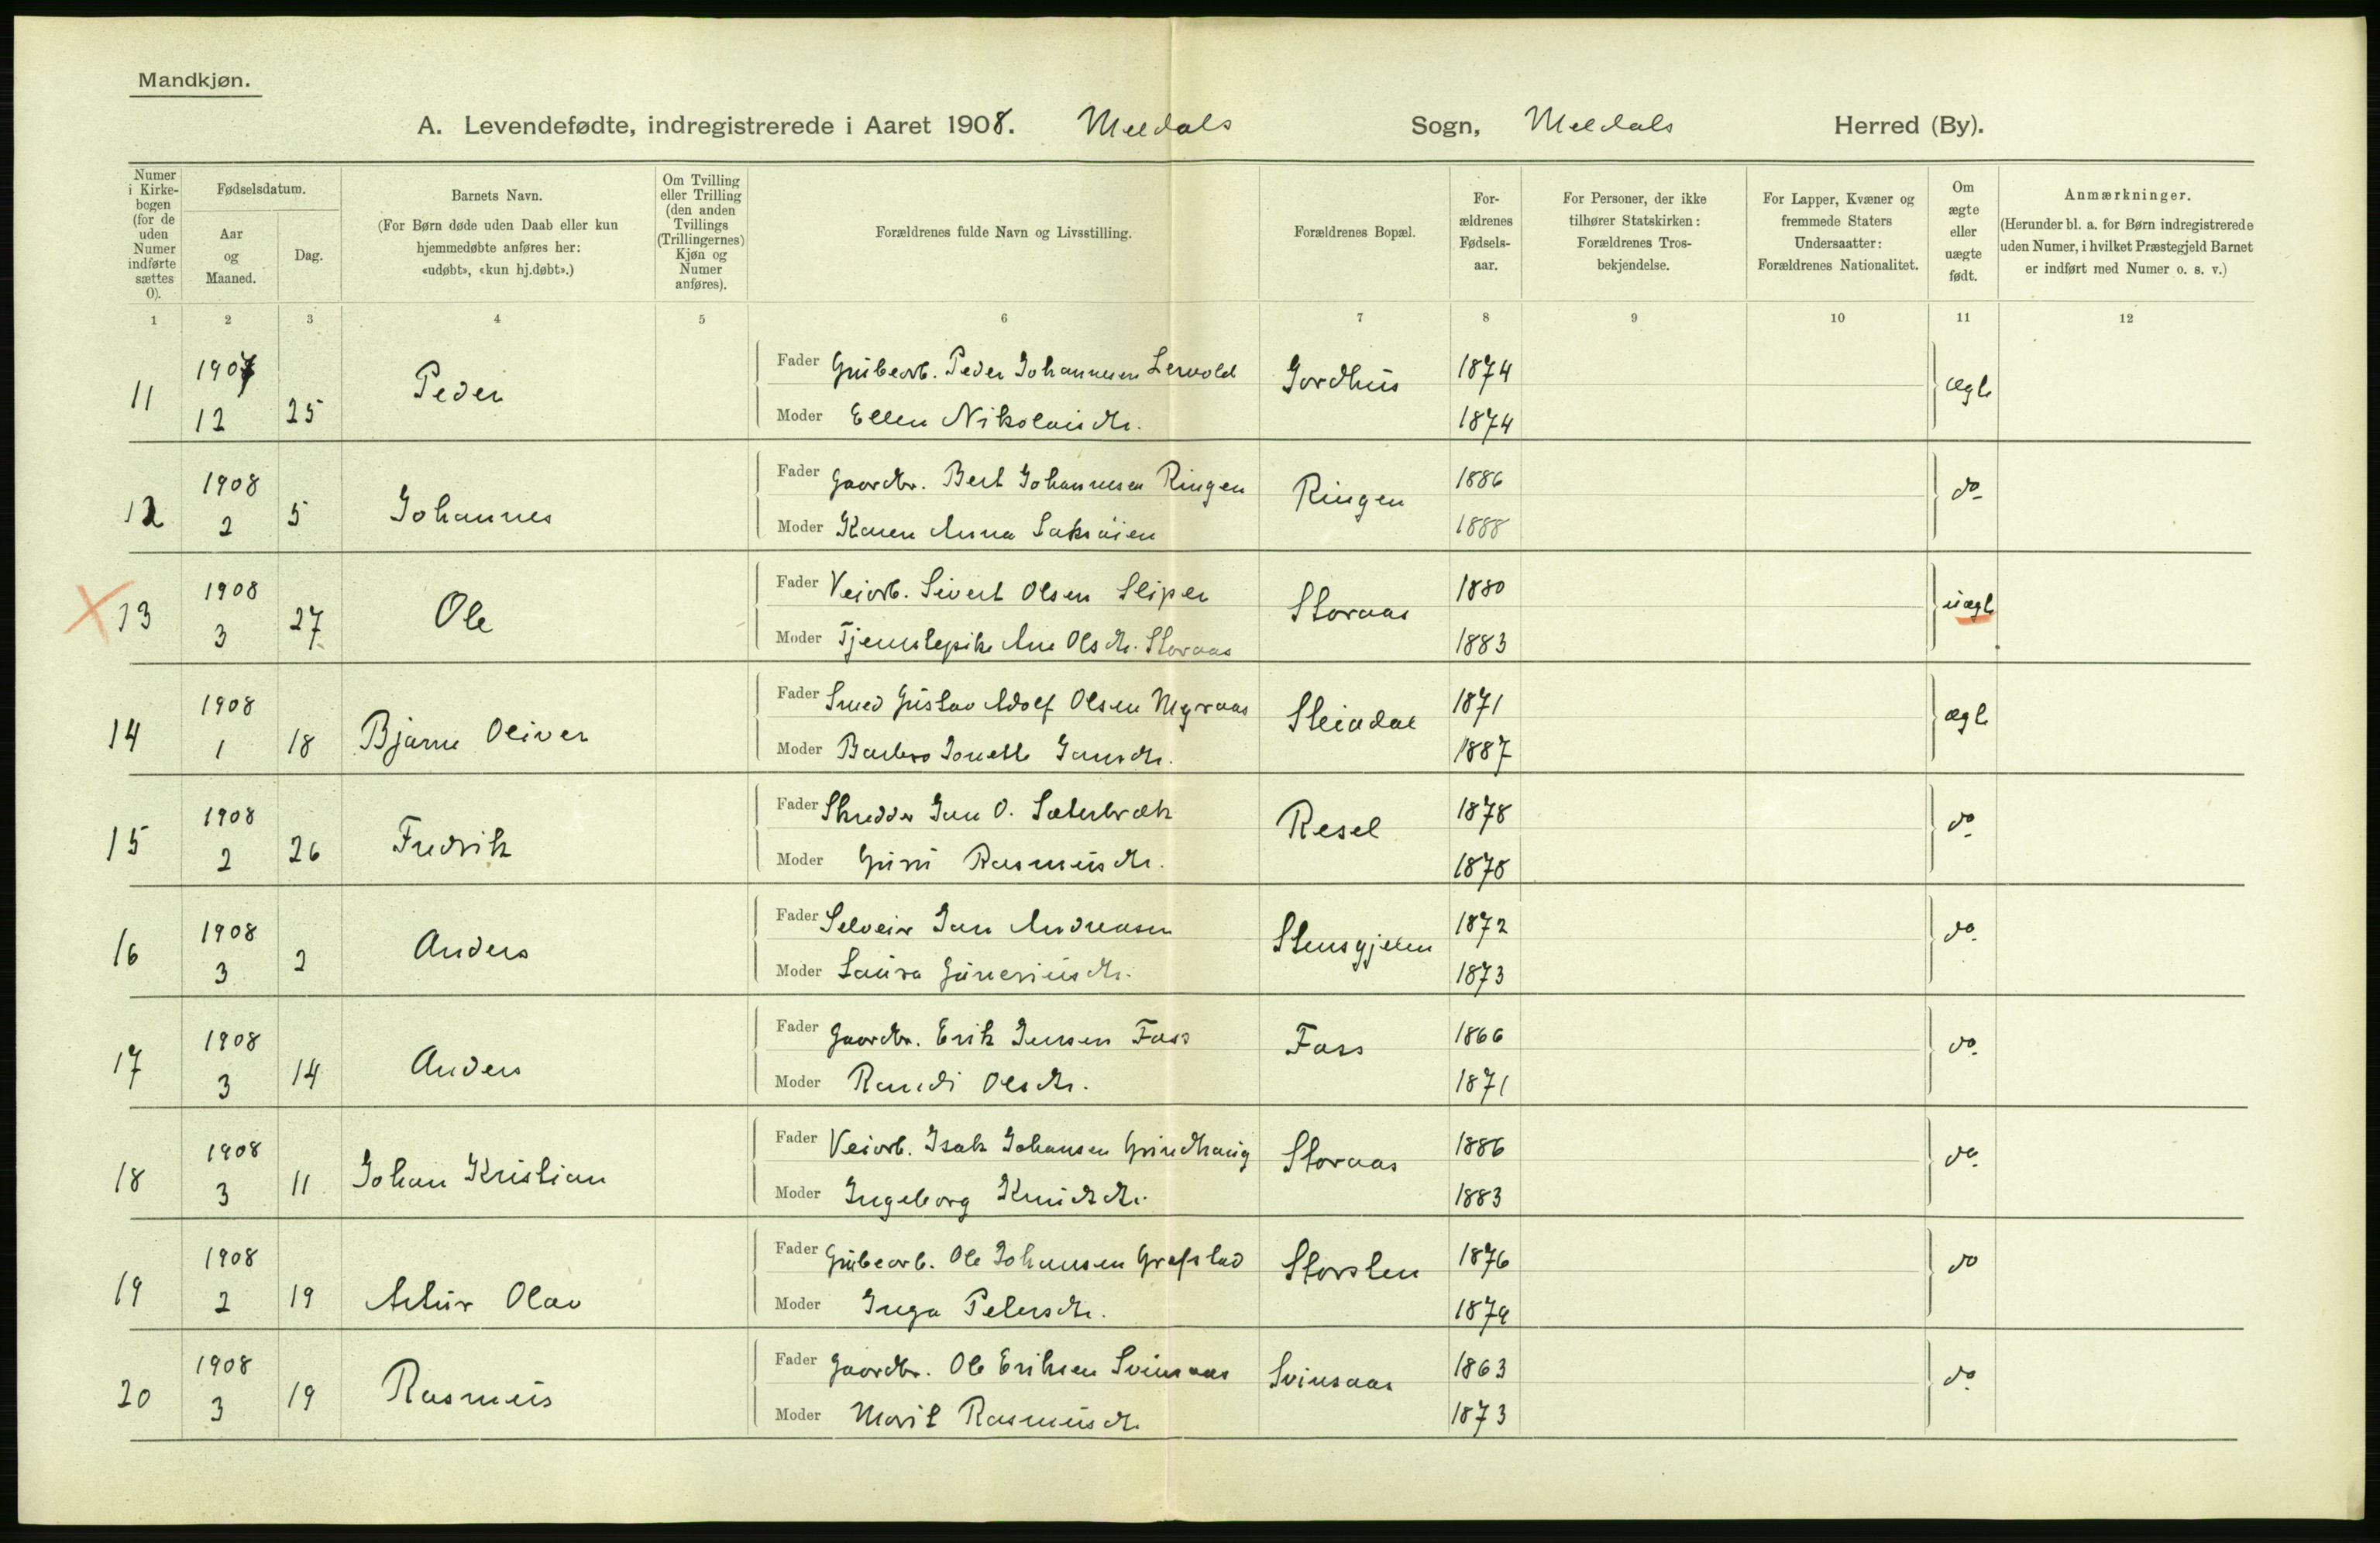 Mandkjøn.
A. Levendefødte, indregistrerede i Aaret 1908. Meldals Sogn, Meldals Herred (By).
Numer i Kirkebogen (for de uden Numer indførte sættes 0).
Fødselsdatum.
Aar og Maaned.
Dag.
Barnets Navn.
(For Børn døde uden Daab eller kun hjemmedøbte anføres her: «udøbt», «kun hj.døbt».)
Om Tvilling eller Trilling (den anden Tvillings (Trillingernes) Kjøn og Numer anføres).
Forældrenes fulde Navn og Livsstilling.
Forældrenes Bopæl.
Forældrenes Fødselsaar.
For Personer, der ikke tilhører Statskirken: Forældrenes Trosbekjendelse.
For Lapper, Kvæner og fremmede Staters Undersaatter: Forældrenes Nationalitet.
Om ægte eller uægte født.
Anmærkninger.
(Herunder bl. a. for Børn indregistrerede uden Numer, i hvilket Præstegjeld Barnet er indført med Numer o. s. v.)
1 2 3 4 5 6 7 8 9 10 11 12
11 1907 12 25 Peder
Fader Grubearb. Peder Johannesen Jordhus 1874 ægte
Moder Ellen Nikolaisdtr. 1874
12 1908 2 5 Johannes
Fader Gaardbr. Berit Johannesen Ringen Ringen 1886 do
Moder Karen Anna 1888
X 13 1908 3 27 Ole
Fader Veiarb. Sivert Olsen Sliper Storaas 1880 uægte
Moder Tjenestepike Ane Olsdtr. Storaas 1883
14 1908 1 18 Bjarne Oliver
Fader Smed Gustav Adolf Olsen Myraas Steindal 1871 ægte
Moder Barbro Jonette Jansdtr. 1887
15 1908 2 26 Fredrik
Fader Skredder Jon O. Sæterbræk Resel 1878 do
Moder Guri Rasmusdtr. 1878
16 1908 3 2 Anders
Fader Selveier Jon Andreasen 1872 do
Moder Laura Guneriusdtr. 1873
17 1908 3 14 Anders
Fader Gaardbr. Erik Jensen Fass Fass 1866 do
Moder Randi Olsdtr. 1871
18 1908 3 11 Johan Kristian
Fader Veiarb. Isak Johansen Grindhaug Storaas 1886 do
Moder Ingeborg Knudsdtr. 1883
19 1908 2 19 Artur Olav
Fader Grubearb. Ole Johansen Grefstad Storsten 1876 do
Moder Inga Petersdtr. 1879
20 1908 3 19 Rasmus
Fader Gaardbr. Ole Eriksen Svinsaas Svinsaas 1863 do
Moder Marit Rasmusdtr. 1873